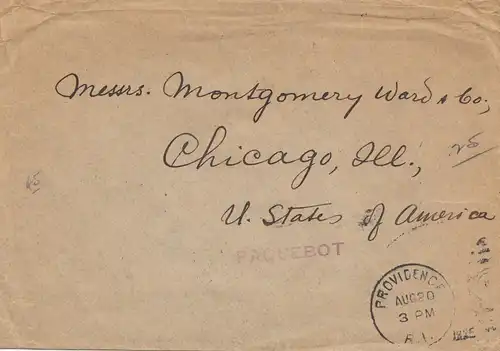 Messrs. Montgomery Ward & Co.,
Chicago, Ill.,
U. States of America
PAQUEBOT
PROVIDENCE
AUG 20
3 PM
R.I.